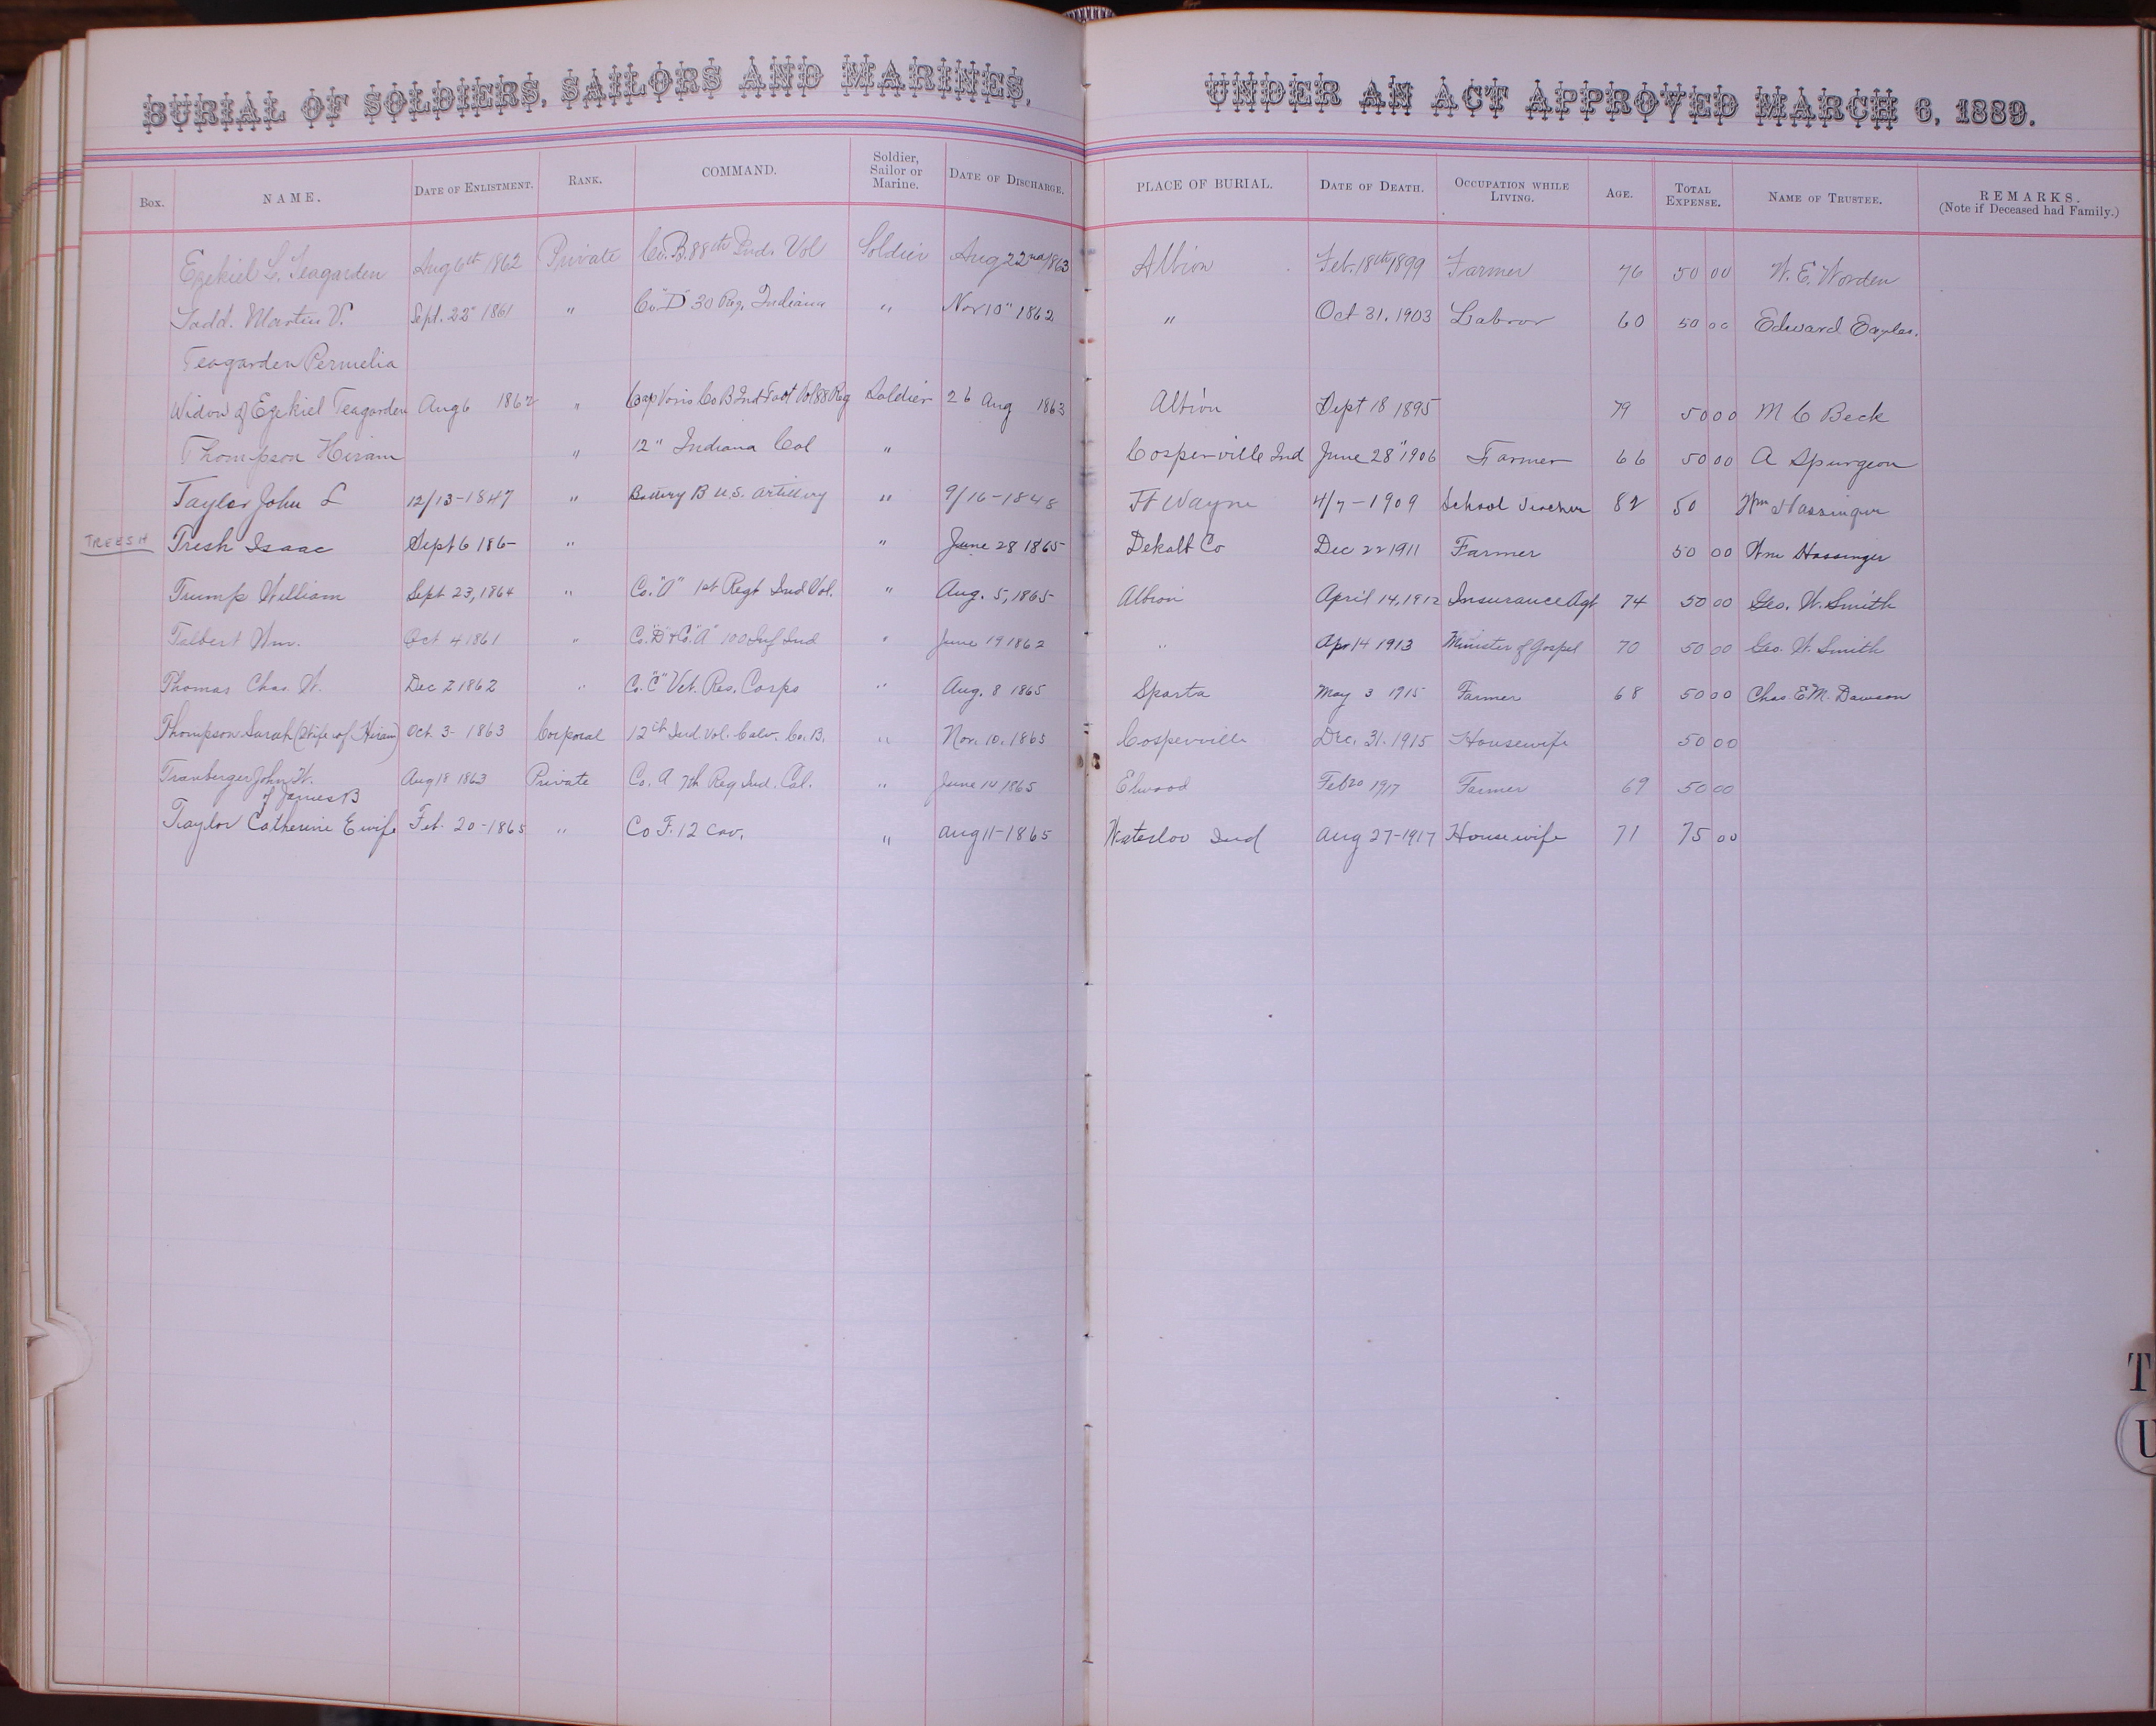 BURIAL OF SOLDIERS, SAILORS AND MARINES, UNDER AN ACT APPROVED MARCH 6, 1889.
Box. NAME. DATE OF ENLISTMENT. RANK. COMMAND. Soldier, Sailor or Marine. DATE OF DISCHARGE. PLACE OF BURIAL. DATE OF DEATH. OCCUPATION WHILE LIVING. AGE. TOTAL EXPENSE. NAME OF TRUSTEE. REMARKS. (Note if Deceased had Family.)
Ezekiel L. Teagarden Aug 6th 1862 Private Co. B. 88th Ind. Vol Soldier Aug 22nd 1863 Albion Feb. 18th 1899 Farmer 76 50 00 W. E. Worden
Todd. Martin V. Sept. 22" 1861 " Co "D" 30 Reg. Indiana " Nov 10" 1862 " Oct 31, 1903 Labror 60 50 00 Edward
Teagarden Permelia
Widow of Ezekiel Teagarden Aug 6 1862 " Cap Voris Co B Ind Foot Vol 88 Reg Soldier 26 Aug 1863 Albion Sept 18 1895 79 50 00 M C Beck
Thompson Hiram " 12" Indiana Cal " Cosperville Ind June 28" 1906 Farmer 66 50 00 A Spurgeon
Taylor John L 12/13-1847 " Battery B U.S. Artillery " 9/16-1848 Ft Wayne 4/7-1909 School Teacher 82 50 Wm Hassinger
TREESH Tresh Isaac Sept 6 186- " " June 28 1865 Dekalb Co Dec 22 1911 Farmer 50 00 Wm Hassinger
Trump William Sept 23, 1864 " 1st Regt Ind Vol. " Aug. 5, 1865 Albion April 14, 1912 Insurance Agt 74 50 00 Geo. W. Smith
Talbert Wm. Oct 4 1861 " Co. "D" & Co. "A" 100 Inf Ind " June 19 1862 " Apr 14 1913 Minister of Gospel 70 50 00 Geo. W. Smith
Thomas Chas. W. Dec 2 1862 " Co. "C" Vet. Res. Corps " Aug. 8 1865 Sparta May 3 1915 Farmer 68 50 00 Chas. E. M. Dawson
Thompson Sarah (Wife of Hiram) Oct. 3- 1863 Corporal 12th Ind Vol. Calv. Co. B. " Nov. 10, 1865 Cosperville Dec. 31. 1915 Housewife 50 00
Tranberger John W. Aug 18 1863 Private Co. A 7th Reg Ind. Cal. " June 14 1865 Elwood Feb 20 1917 Farmer 69 50 00
of James B
Taylor Catherine E wife Feb. 20-1865 " Co F. 12 Cav. " Aug 11-1865 Waterloo Ind Aug 27-1917 Housewife 71 75 00
T
U